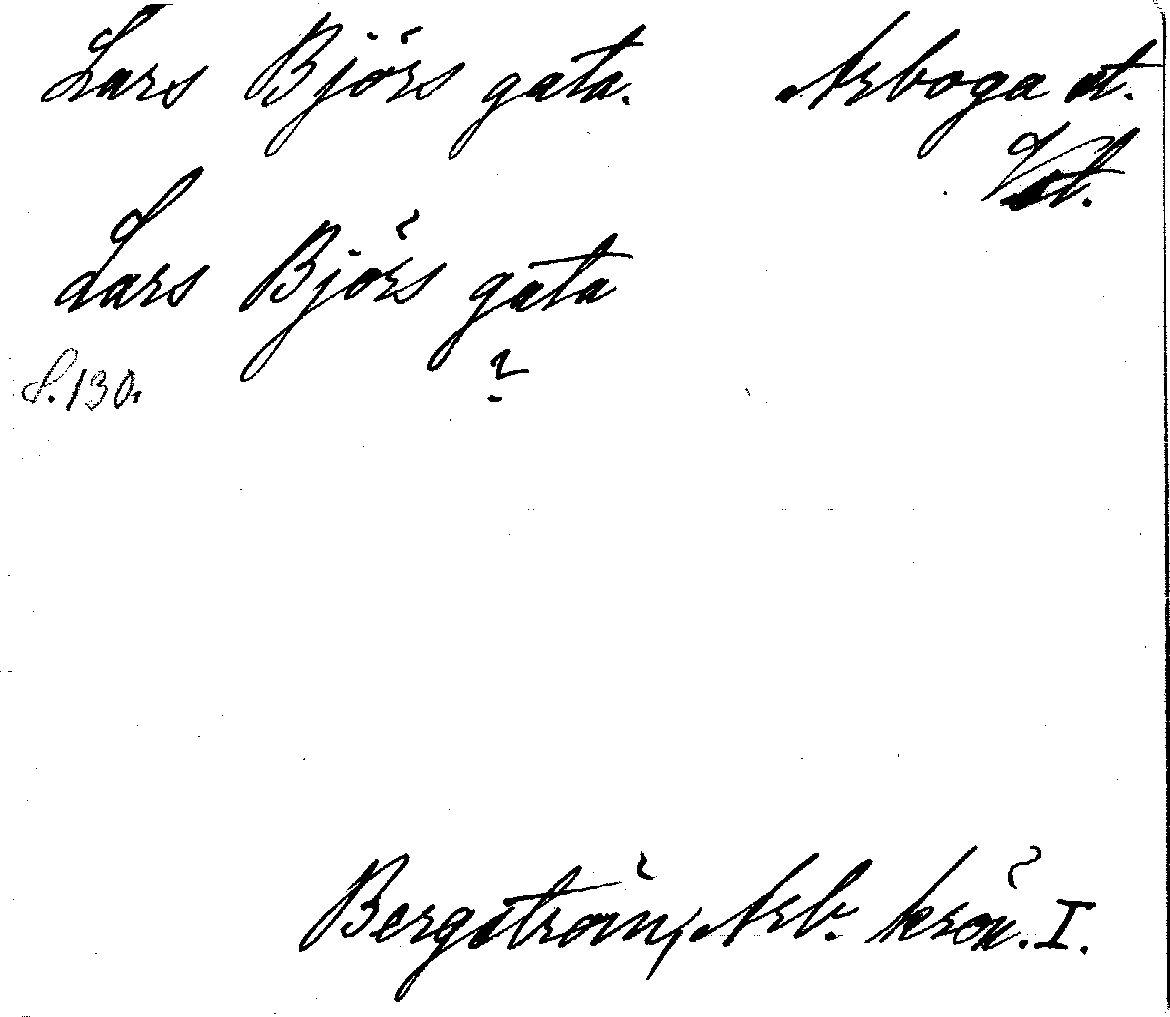 Lars Björs gata. Arboga st.
Vstl.
Lars Björs gata
S. 130. ?
Bergström, Arb. krön. I.